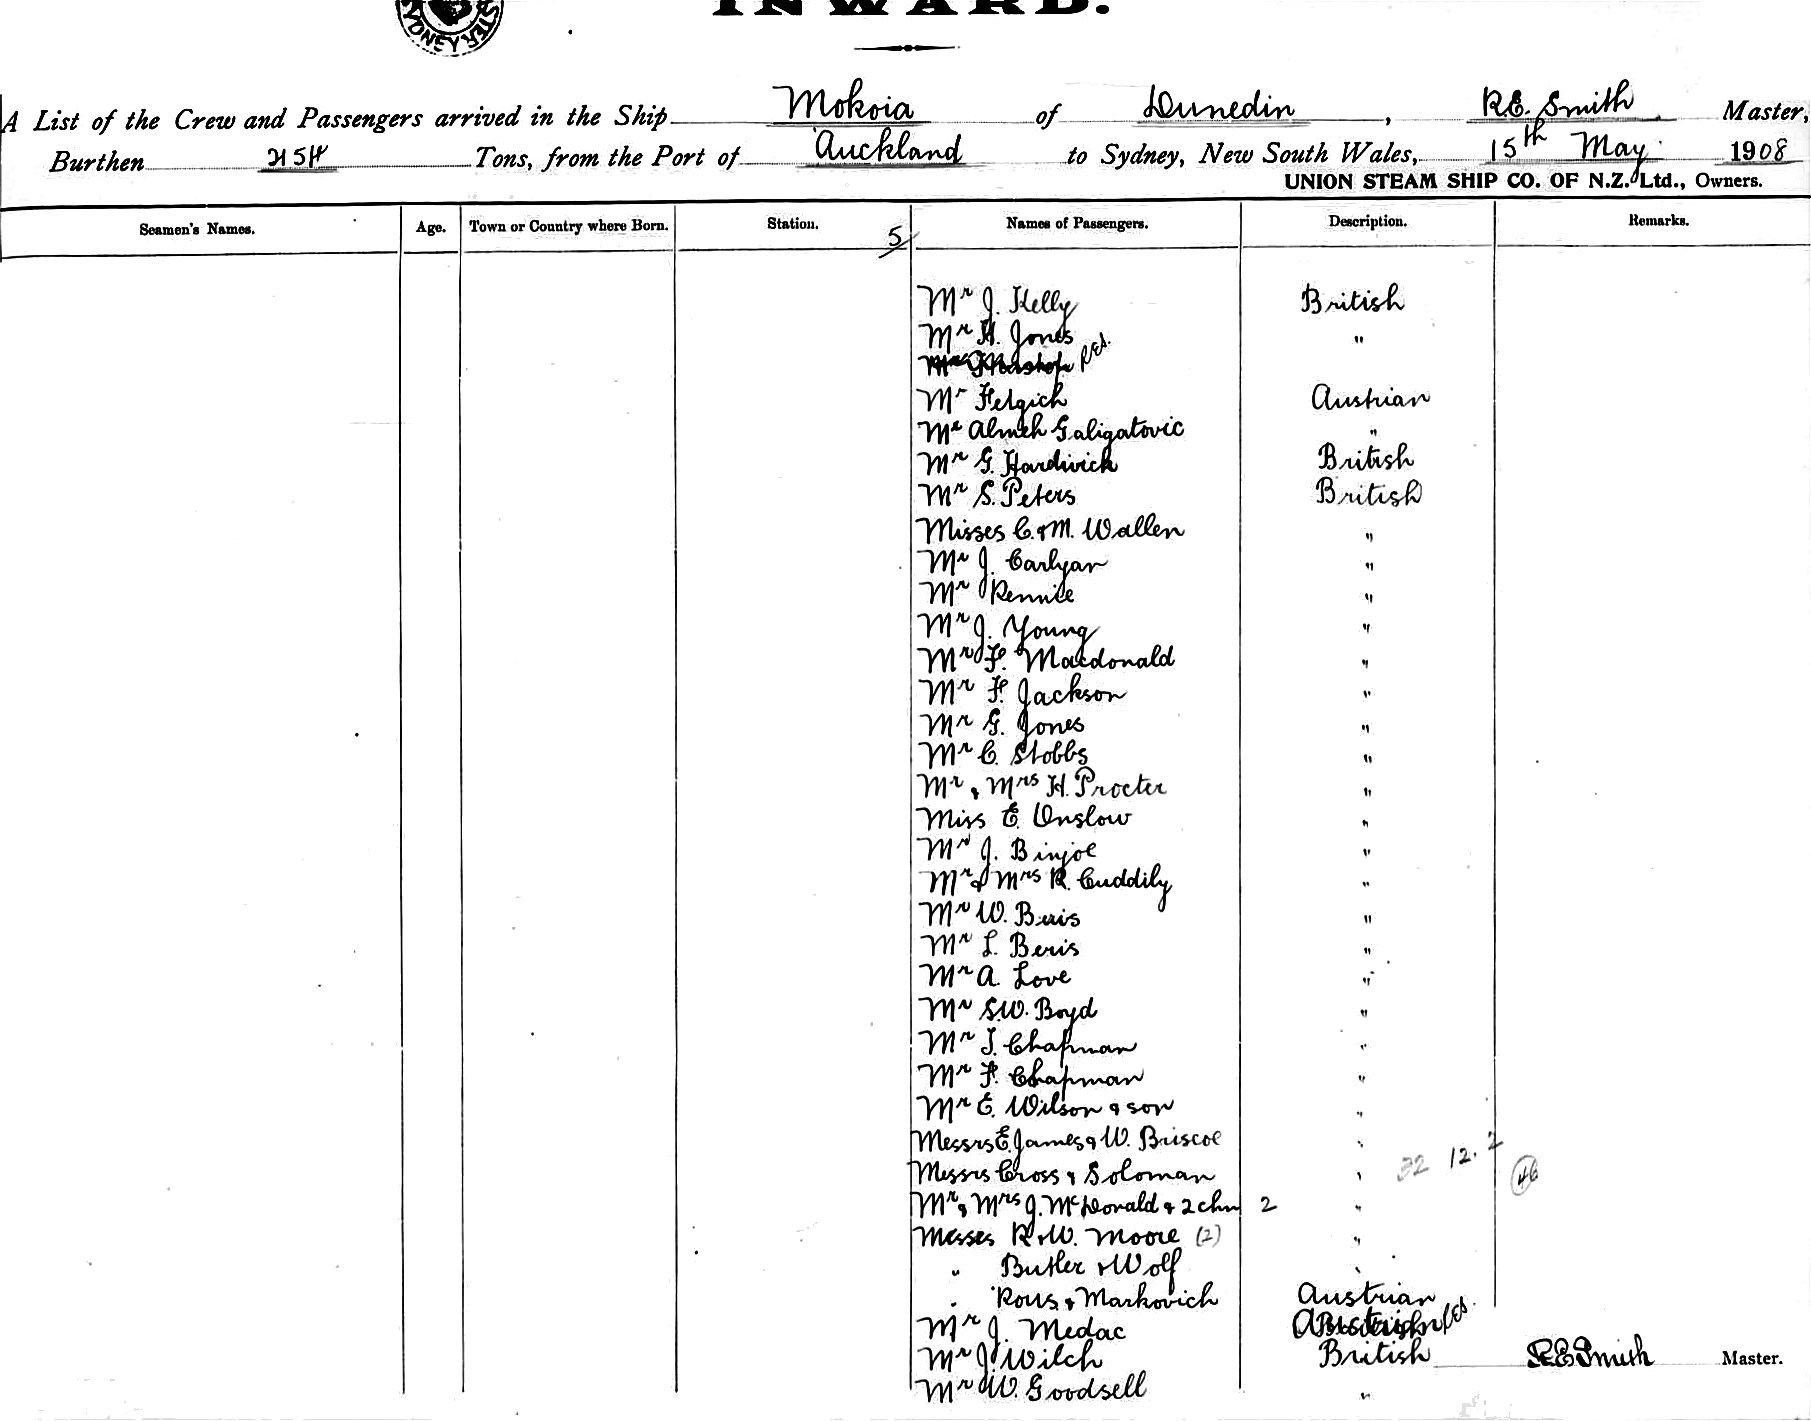 SYDNEY
INWARD.
A List of the Crew and Passengers arrived in the Ship Mokoia of Dunedin, R.E. Smith Master,
Burthen 2154 Tons, from the Port of Auckland to Sydney, New South Wales, 15th May 1908
UNION STEAM SHIP CO. OF N.Z. Ltd., Owners.
Seamen's Names. Age. Town or Country where Born. Station. 5 Names of Passengers. Description. Remarks.
Mr J. Kelly British
Mr H. Jones "
RES.
Mr Felgich Austrian
Mr Almeh Galigatovic "
Mr G. Hardwick British
Mr S. Peters British
Misses C. & M. Wallen "
Mr J. Carlyan "
Mr Rennie "
Mr J. Young "
Mr F. Macdonald "
Mr F. Jackson "
Mr G. Jones "
Mr C. Stobbs "
Mr & Mrs H. Procter "
Miss E. Onslow "
Mr J. Binjoe "
Mr & Mrs R. Cuddily "
Mr W. Beris "
Mr L. Beris "
Mr A. Love "
Mr S.W. Boyd "
Mr J. Chapman "
Mr F. Chapman "
Mr E. Wilson & son "
Messrs E. James & W. Briscoe " 32 12. 2
Messrs Cross & Soloman " 46
Mr & Mrs J. McDonald & 2 chn 2 "
Messes R. & W. Moore (2) "
" Butler & Wolf "
" Rous & Markovich Austrian
Mr J. Medac Austrian RES.
Mr J. Wilch British RE Smith Master.
Mr W. Goodsell "